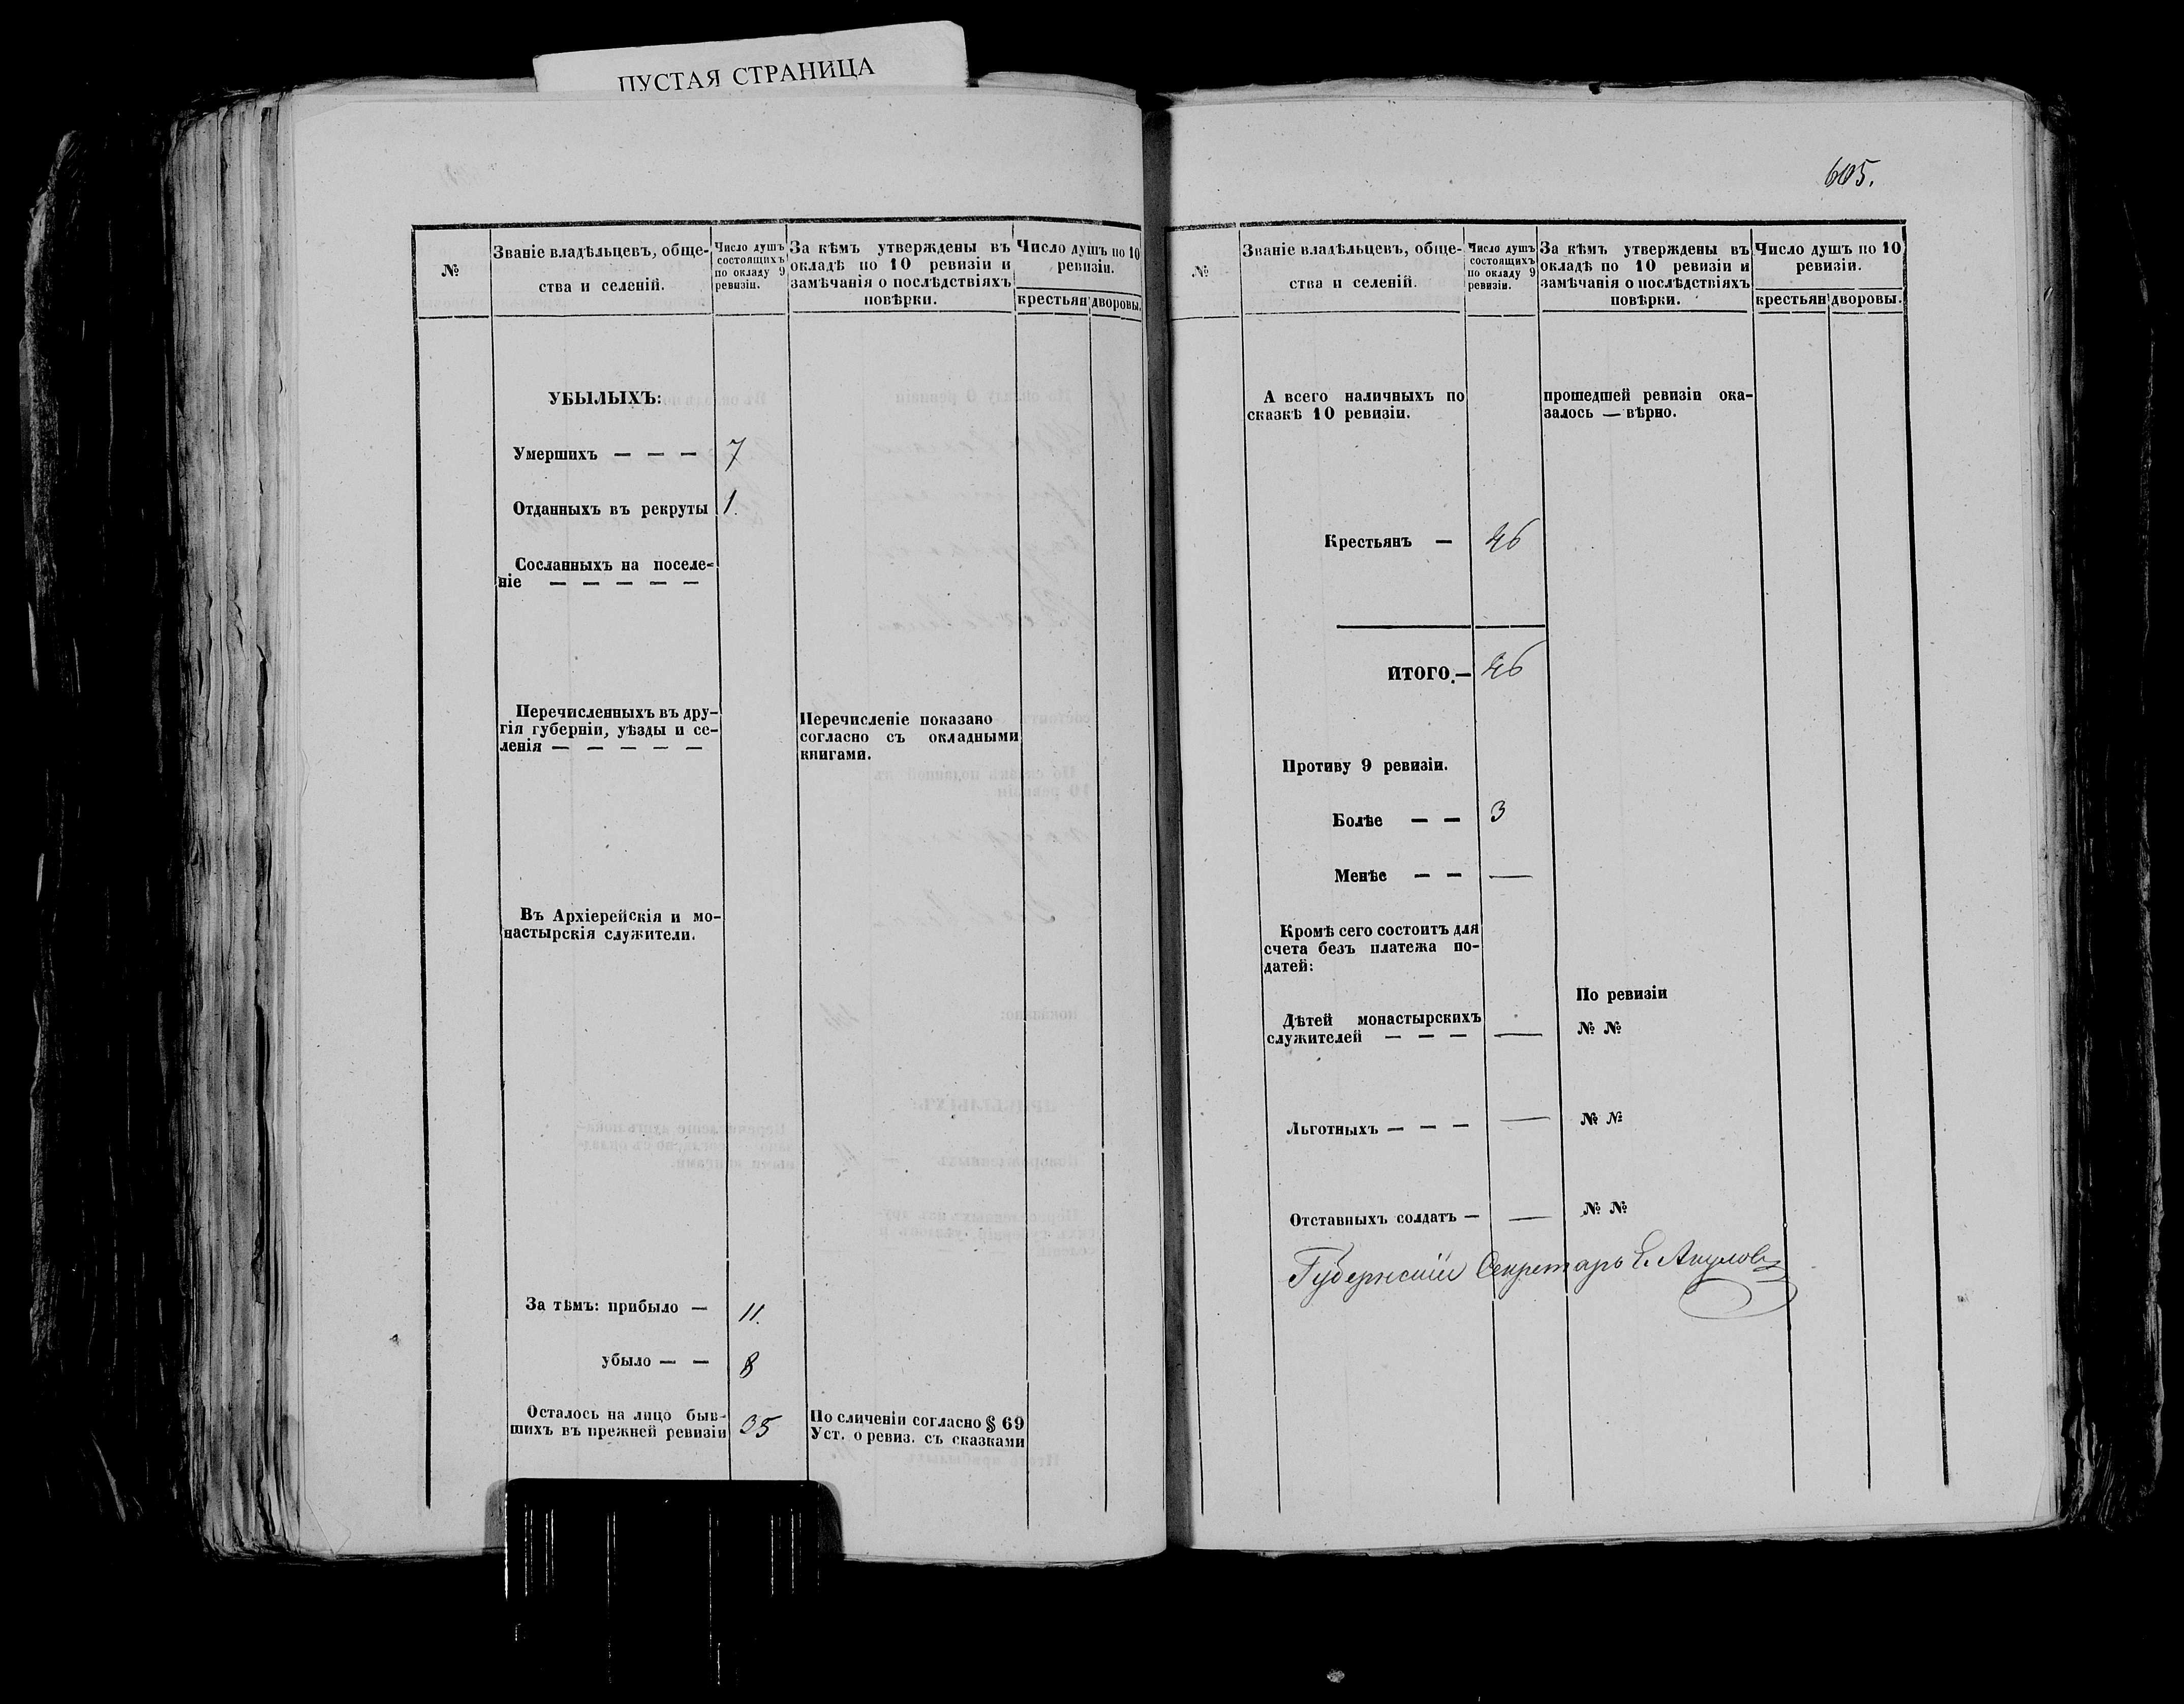 ПУСТАЯ СТРАНИЦА
№
Званіе владѣльцевъ, обще-
ства и селеній.
Число душъ
состоящихъ
по окладу 9
ревизіи.
За кѣмъ утверждены въ
окладѣ по 10 ревизіи и
замѣчанія о послѣдствіяхъ
повѣрки.
Число душъ по 10
ревизіи.
крестьян
дворовы.
УБЫЛЫХЪ:
Умершихъ — — — 7
Отданныхъ въ рекруты 1.
Сосланныхъ на поселе-
ніе — — — — —
Перечисленныхъ въ дру-
гія губерніи, уѣзды и се-
ленія — — — — —
Перечисленіе показано
согласно съ окладными
книгами.
Въ Архіерейскія и мо-
настырскія служители.
За тѣмъ: прибыло — 11.
убыло — — 8
Осталось на лицо быв-
шихъ въ прежней ревизіи 35
По сличеніи согласно § 69
Уст. о ревиз. съ сказками
605.
№
Званіе владѣльцевъ, обще-
ства и селеній.
Число душъ
состоящихъ
по окладу 9
ревизіи.
За кѣмъ утверждены въ
окладѣ по 10 ревизіи и
замѣчанія о послѣдствіяхъ
повѣрки.
Число душъ по 10
ревизіи.
крестьян
дворовы.
А всего наличныхъ по
сказкѣ 10 ревизіи.
прошедшей ревизіи ока-
залось — вѣрно.
Крестьянъ — 46
ИТОГО.— 46
Противу 9 ревизіи.
Болѣе — — 3
Менѣе — — —
Кромѣ сего состоитъ для
счета безъ платежа по-
датей:
По ревизіи
Дѣтей монастырскихъ
служителей — — — —
№ №
Льготныхъ — — — — № №
Отставныхъ солдатъ — — № №
Губернскій Секретарь Е. Акуловъ